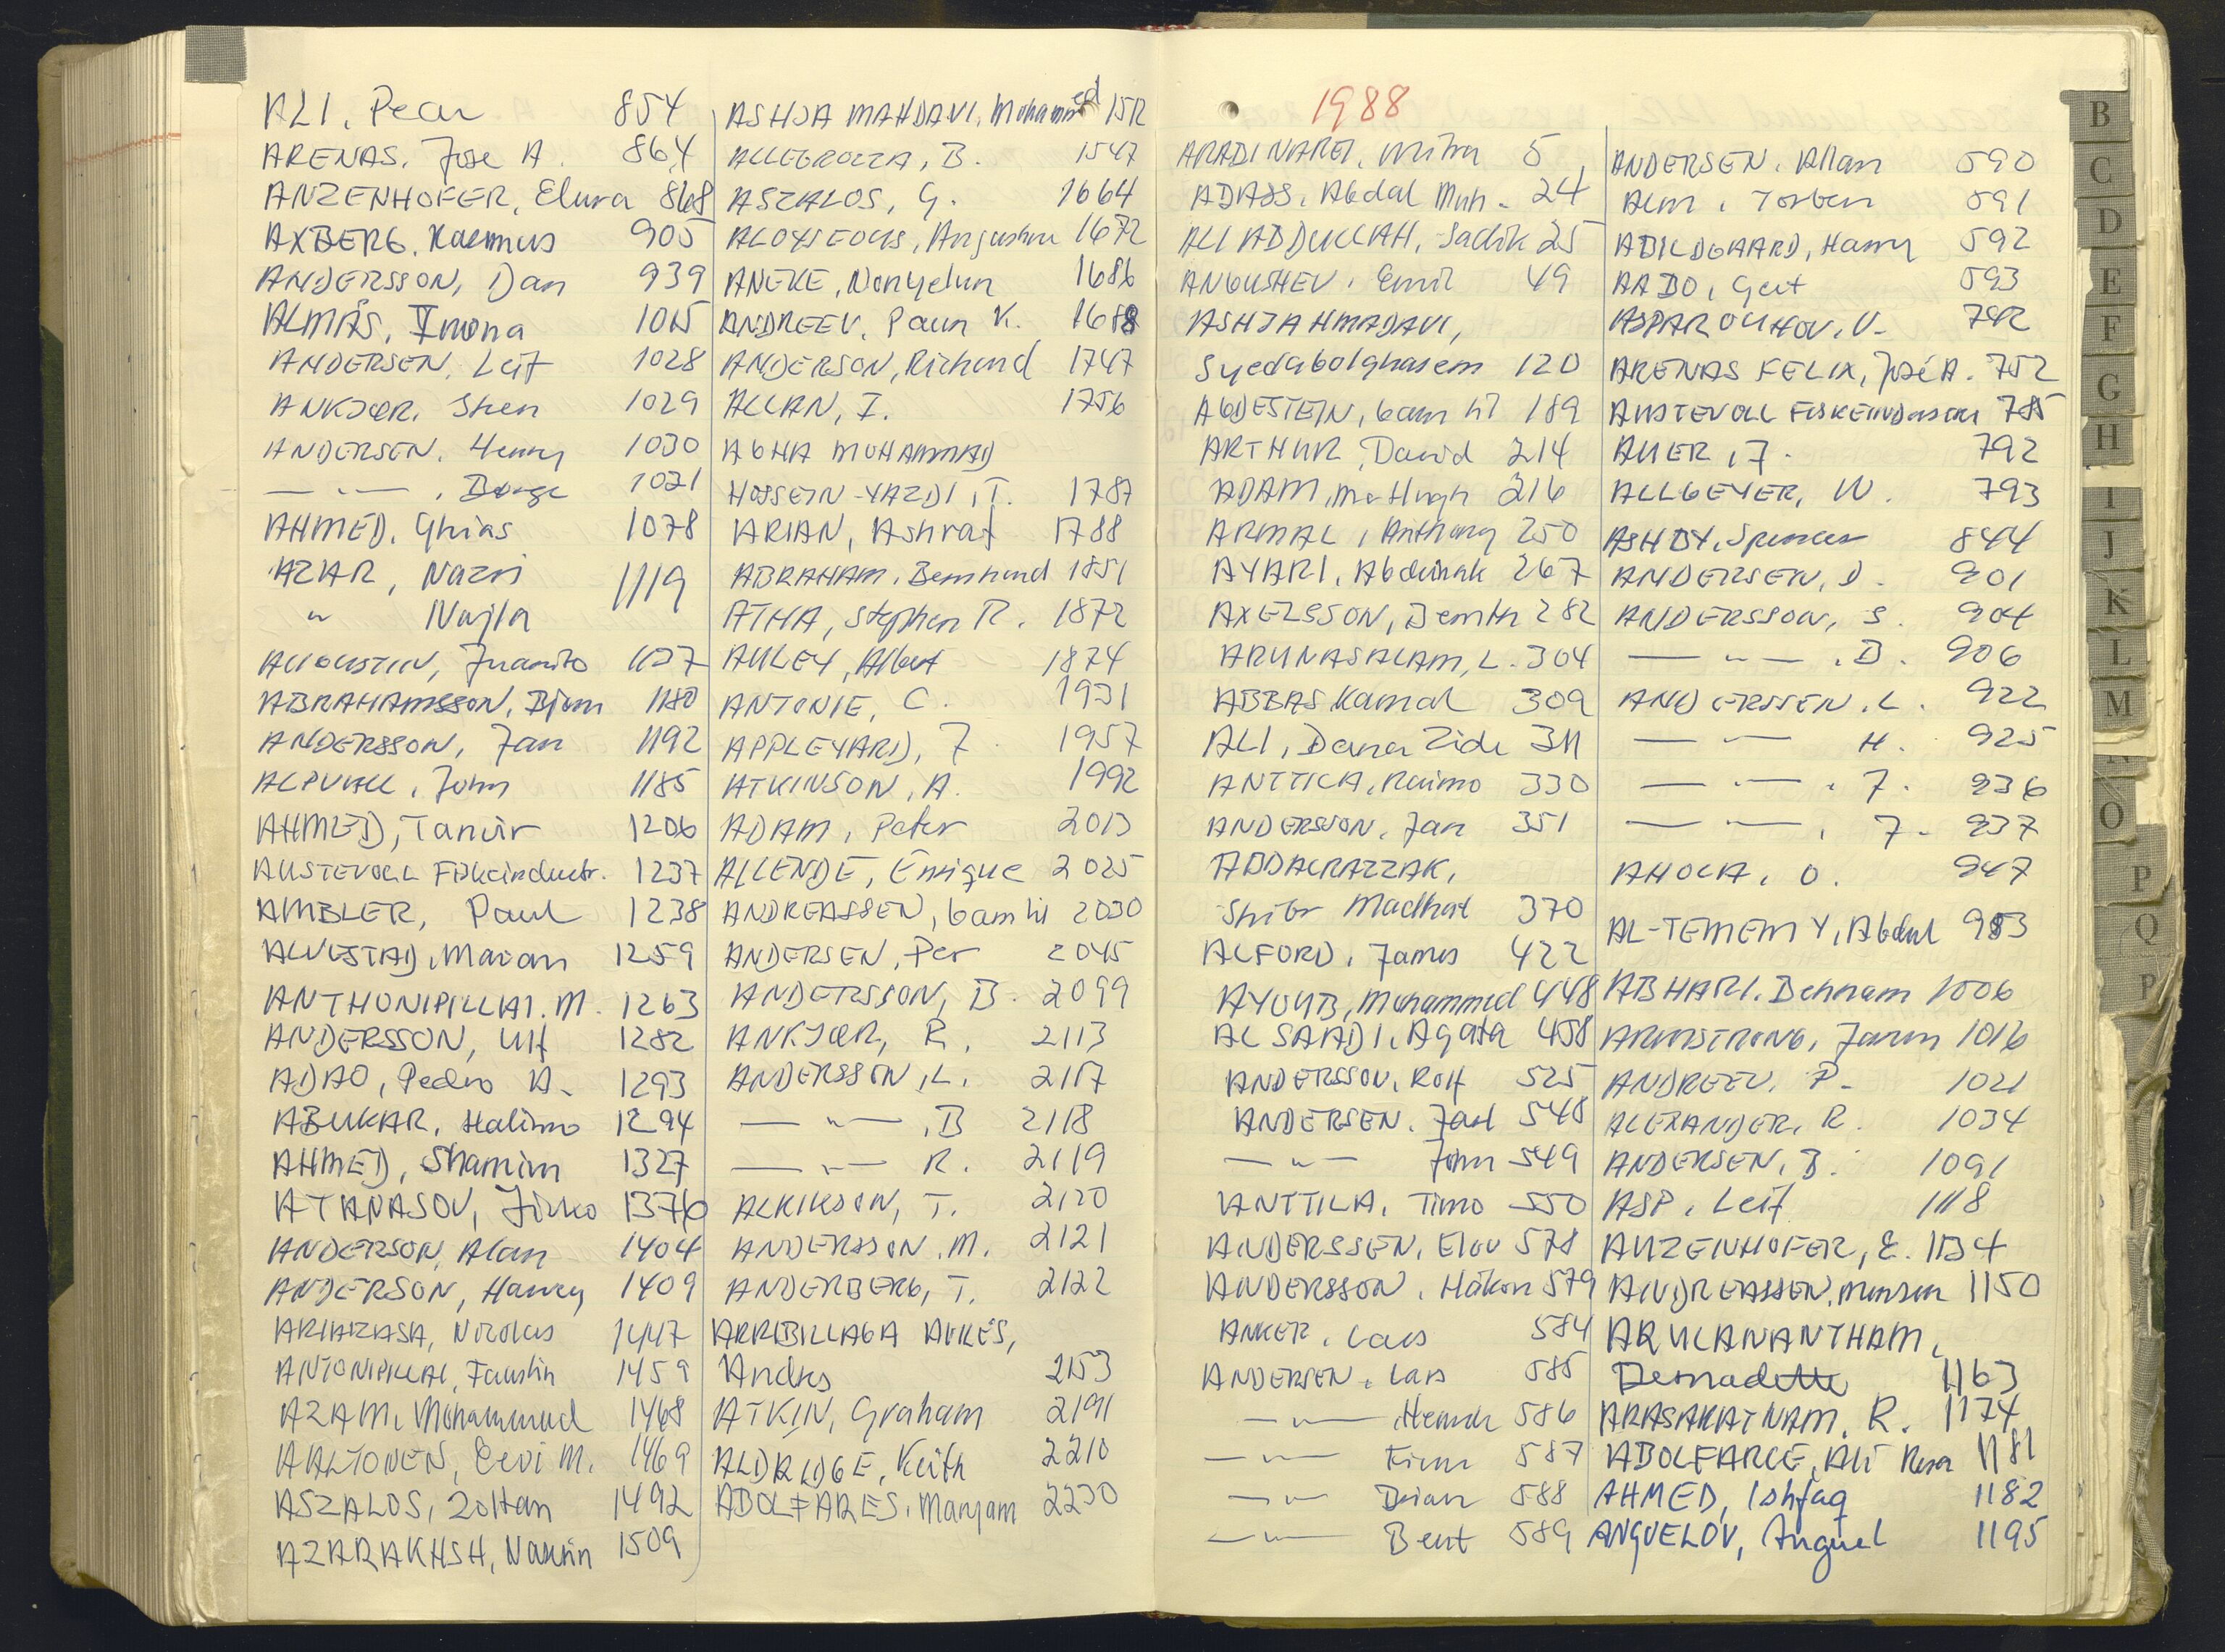 ALI, Pear 854
ARENAS, Jose A. 864
ANZENHOFER, Elvira 868
AXBERG, Rasmus 905
ANDERSSON, Dan 939
ALMÅS, Imona 1015
ANDERSEN, Leif 1028
ANKJÆR, Sten 1029
ANDERSEN, Henry 1030
— " — , Børge 1031
AHMED, Ghias 1078
AZAR, Nazri 1119
" Najla
AUGUSTIN, Juanito 1137
ABRAHAMSSON, Bjørn 1180
ANDERSSON, Jan 1192
ALPVALL, John 1185
AHMED, Tanvir 1206
AUSTEVOLL Fiskeindustr. 1237
AMBLER, Paul 1238
ALVESTAD, Marian 1259
ANTHONIPILLAI, M. 1263
ANDERSSON, Ulf 1282
ADAO, Pedro A. 1293
ABUKAR, Halimo 1294
AHMED, Shamim 1327
ATANASOV, Jirko 1376
ANDERSON, Alan 1404
ANDERSON, Harvey 1409
ARIARASA, Nicolas 1447
ANTONIPILLAI, Faustin 1459
AZAM, Mohammad 1468
AALTONEN, Eevi M. 1469
ASZALOS, Zoltan 1492
AZARAKHSH, Nasrin 1509
ASHJA MAHDAVI, Mohammed 1512
ALLEGROZZA, B. 1547
ASZALOS, G. 1664
ALOYSEOUS, Augustin 1672
ANEKE, Nonyelun 1686
ANDREEV, Paun K. 1688
ANDERSON, Richard 1747
ALLAN, I. 1756
AGHA MOHAMMAD
HOSSEIN-YAZDI, T. 1787
ARIAN, Ashraf 1788
ABRAHAM, Bernhard 1851
ATHA, Stephen R. 1872
AULEY, Albert 1874
ANTONIE, C. 1931
APPLEYARD, J. 1957
ATKINSON, A. 1992
ADAM, Peter 2013
ALLENDE, Enrique 2025
ANDREASSEN, Gam til 2030
ANDERSEN, Per 2045
ANDERSSON, B. 2099
ANKJÆR, R. 2113
ANDERSSON, L. 2117
— " — , B 2118
— " — R. 2119
ALKIKSON, T. 2120
ANDERSSON, M. 2121
ANDERBERG, T. 2122
ARRIBILLAGA AVILÉS,
Andres 2153
ATKIN, Graham 2191
ALDRIDGE, Keith 2210
ABOLFARES, Maryam 2230
1988
ARADINAREI, Mitra 5
ADASS, Abdal Muh. 24
ALI ABDULLAH, Sadik 25
ANGUSHEV, Emil 49
ASHJAHMADAVI,
Syedabolghasem 120
AGDESTEIN, Gam til 189
ARTHUR, David 214
ADAM, McHugh 216
ARMAL, Anthony 250
AYARI, Abdelhak 267
AXELSSON, Bernth 282
ARUNASALAM, L. 304
ABBAS Kamal 309
ALI, Dana Zide 311
ANTTILA, Raimo 330
ANDERSSON, Jan 351
ABDALRAZZAK,
Shibr Madhat 370
ALFORD, James 422
AYOUB, Mohammed 448
AL SAADI, Agata 458
ANDERSSON, Rolf 525
ANDERSEN, Jarl 548
— " — John 549
ANTTILA, Timo 550
ANDERSSEN, Elov 578
ANDERSSON, Håkon 579
ANKER, Lars 584
ANDERSEN, Lars 585
— " — Henrik 586
— " — Finn 587
— " — Brian 588
— " — Bent 589
ANDERSEN, Allan 590
Alm, Torben 591
ABILDGAARD, Harry 592
AABO, Gert 593
ASPAROUHOV, V. 742
ARENAS FELIX, José A. 752
AUSTEVOLL FISKEINDUSTRI 785
AUER, J. 792
ALLGEYER, W. 793
ASHBY, Spencer 844
ANDERSEN, D. 901
ANDERSSON, S. 904
— " — , B. 906
ANDERSSEN, L. 922
— " — H. 925
— " — , J. 936
— " — , J. 937
AHOLA, O. 947
AL-TEMEMY, Abdul 983
ABHARI, Behnam 1006
ARMSTRONG, Jason 1016
ANDREEV, P. 1021
ALEXANDER, R. 1034
ANDERSEN, B. 1091
ASP, Leif 1118
ANZENHOFER, E. 1134
ANDREASSEN, 1150
ARULANANTHAM,
Bernadette 1163
ARASARATNAM, R. 1174
ABOLFARCE, Ali Resa 1181
AHMED, Ishfaq 1182
ANGUELOV, Anguel 1195
B
C
D
E
F
G
H
I
J
K
L
M
O
P
Q
P